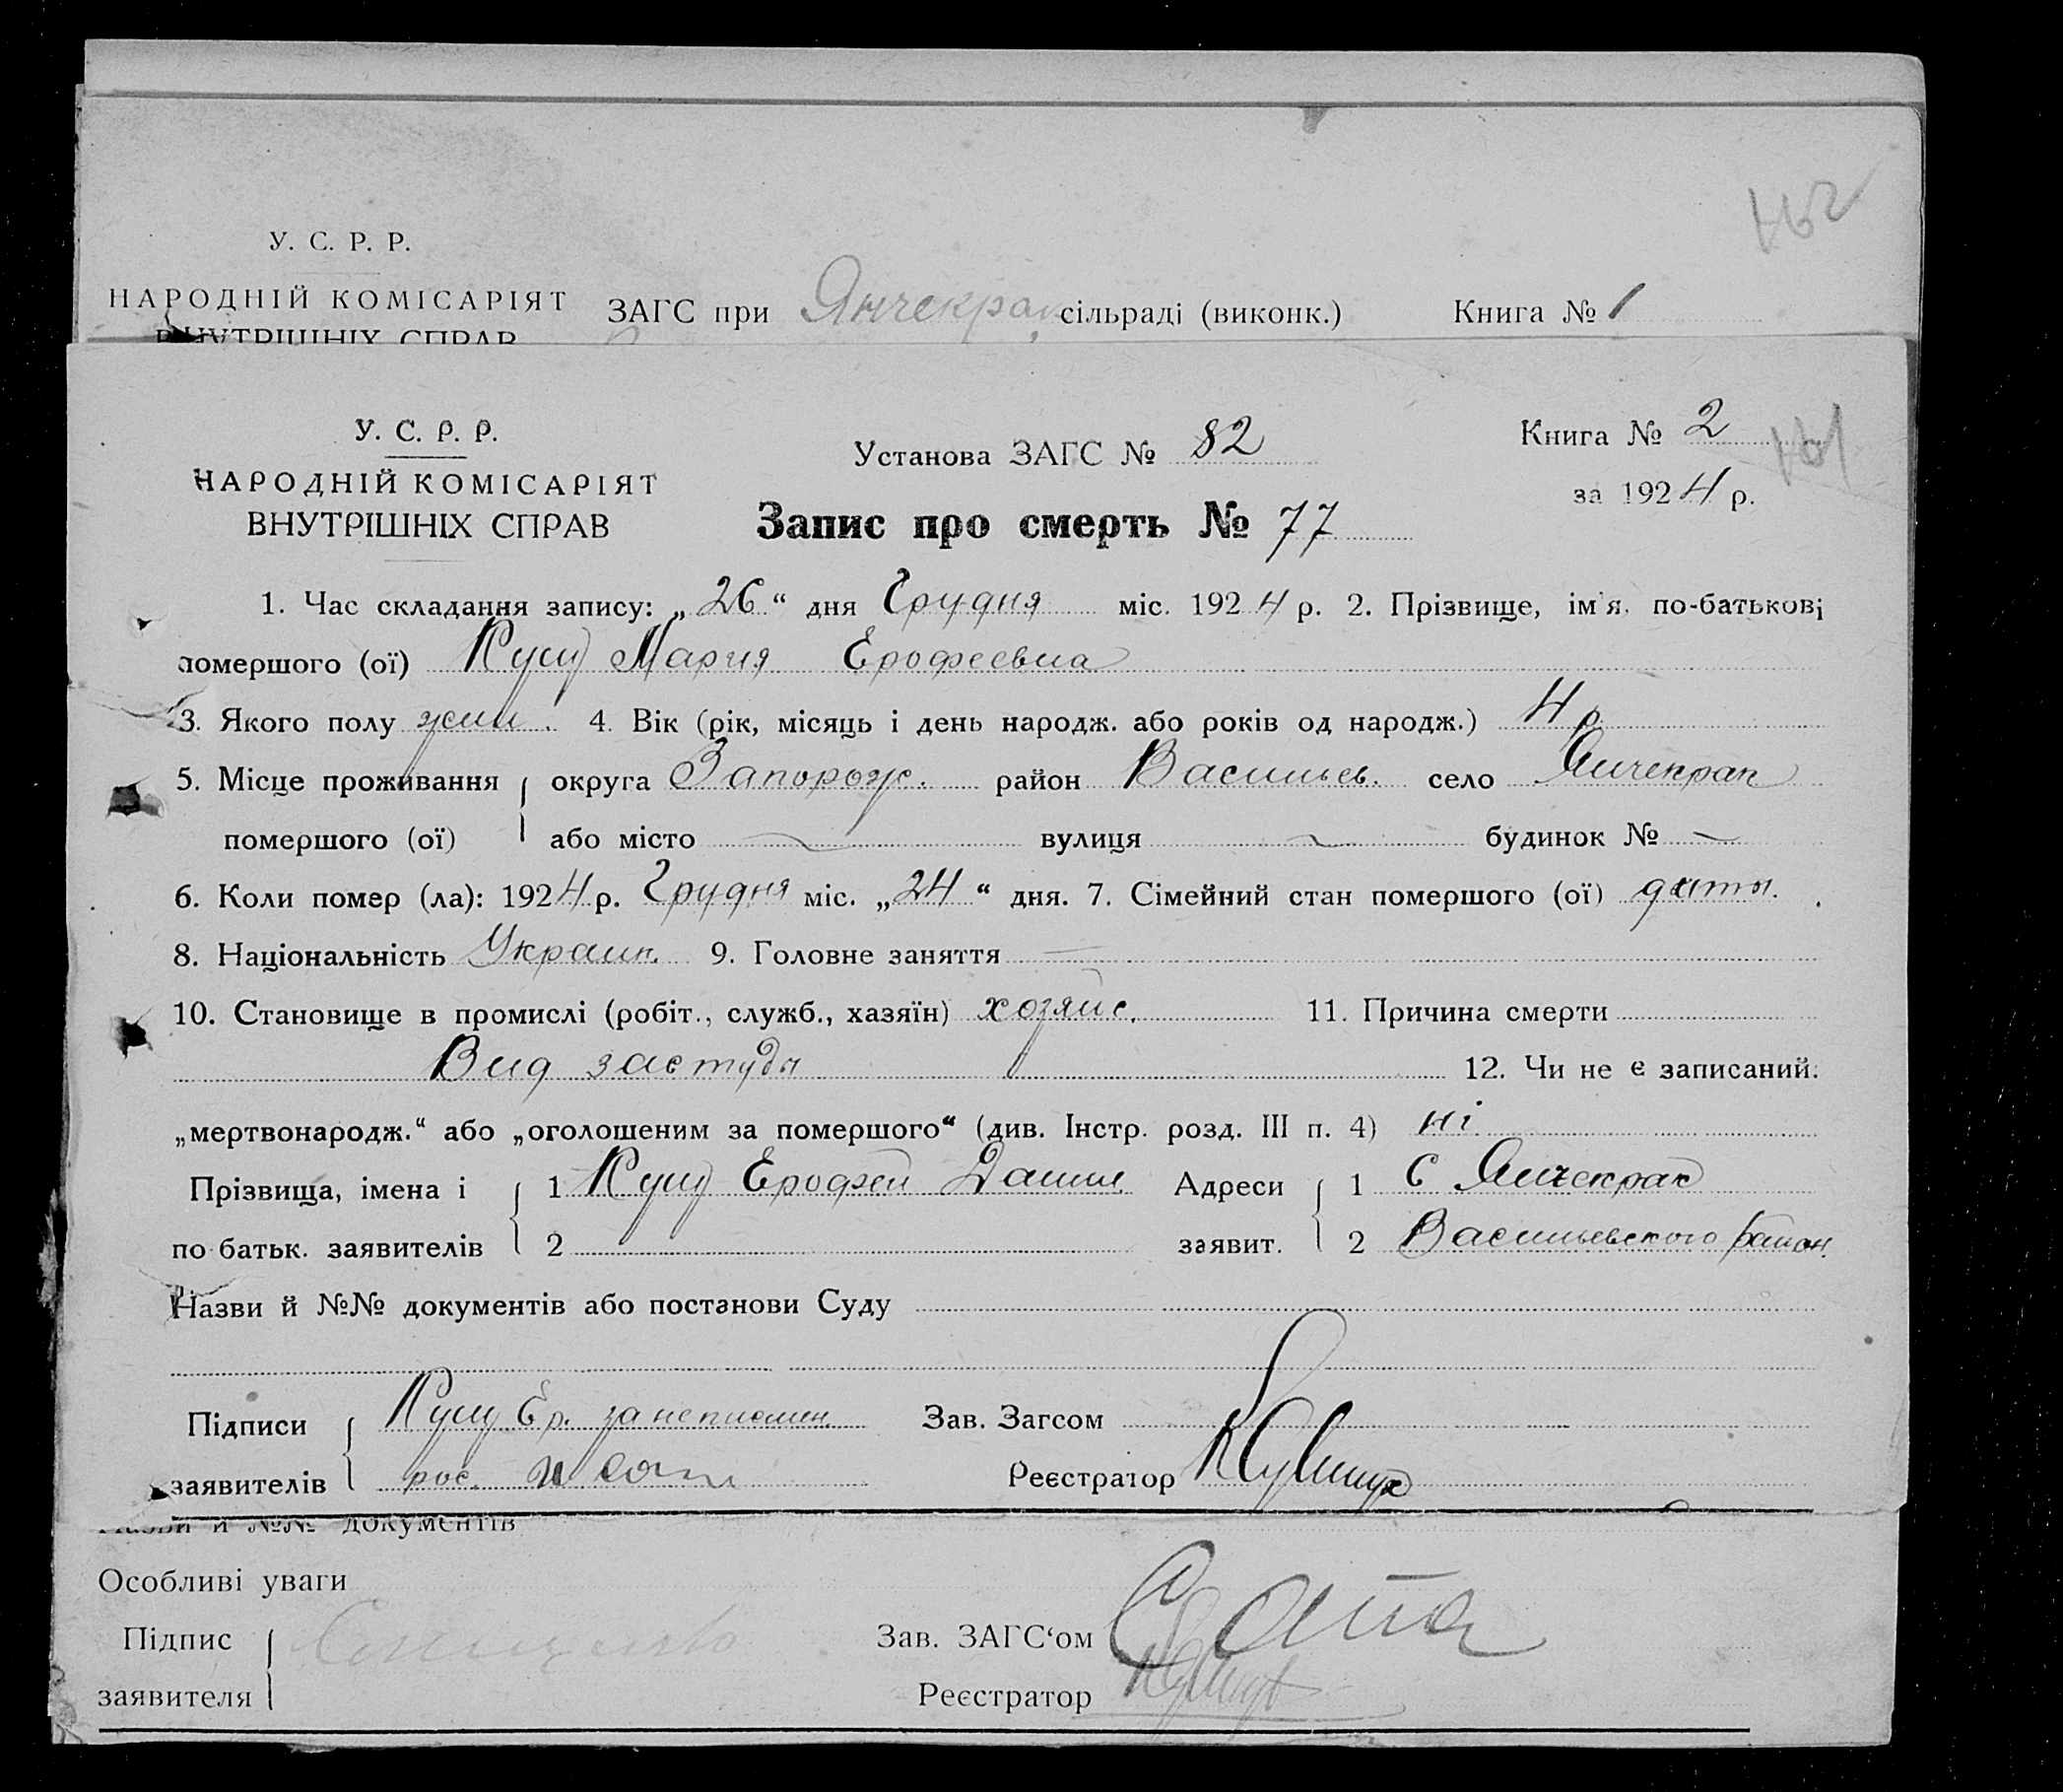 У. С. Р. Р.
НАРОДНІЙ КОМІСАРІЯТ
ВНУТРІШНІХ СПРАВ
ЗАГС при Янчекрак сільраді (виконк.) Книга № 1
У. С. Р. Р.
НАРОДНІЙ КОМІСАРІЯТ
ВНУТРІШНІХ СПРАВ
Установа ЗАГС № 82
Книга № 2
за 1924 р.
Запис про смерть № 77
1. Час складання запису: „26“ дня Грудня міс. 1924 р. 2. Прізвище, ім'я, по-батькові
помершого (ої) Кущ Мария Ерофеевна
3. Якого полу жин. 4. Вік (рік, місяць і день народж. або років од народж.) 4 р.
5. Місце проживання округа Запорож. район Васильев. село Янчекрак
помершого (ої) або місто — вулиця — будинок № —
6. Коли помер (ла): 1924 р. Грудня міс. „24“ дня. 7. Сімейний стан помершого (ої) дити.
8. Національність Украин. 9. Головне заняття —
10. Становище в промислі (робіт., служб., хазяїн) хозяйс. 11. Причина смерти
Вид застуды 12. Чи не є записаний:
„мертвонародж.“ або „оголошеним за помершого“ (див. Інстр. розд. III п. 4) ні
Прізвища, імена і 1 Кущ Ерофей Данил. Адреси 1 С Янчекрак
по батьк. заявителів 2 заявит. 2 Васильевского район.
Назви й №№ документів або постанови Суду
Підписи Кущ Ер. за неписмен.
заявителів рос.
Зав. Загсом
Реєстратор
Назви й №№ документів
Особливі уваги
Підпис
заявителя
Зав. ЗАГС‘ом
Реєстратор